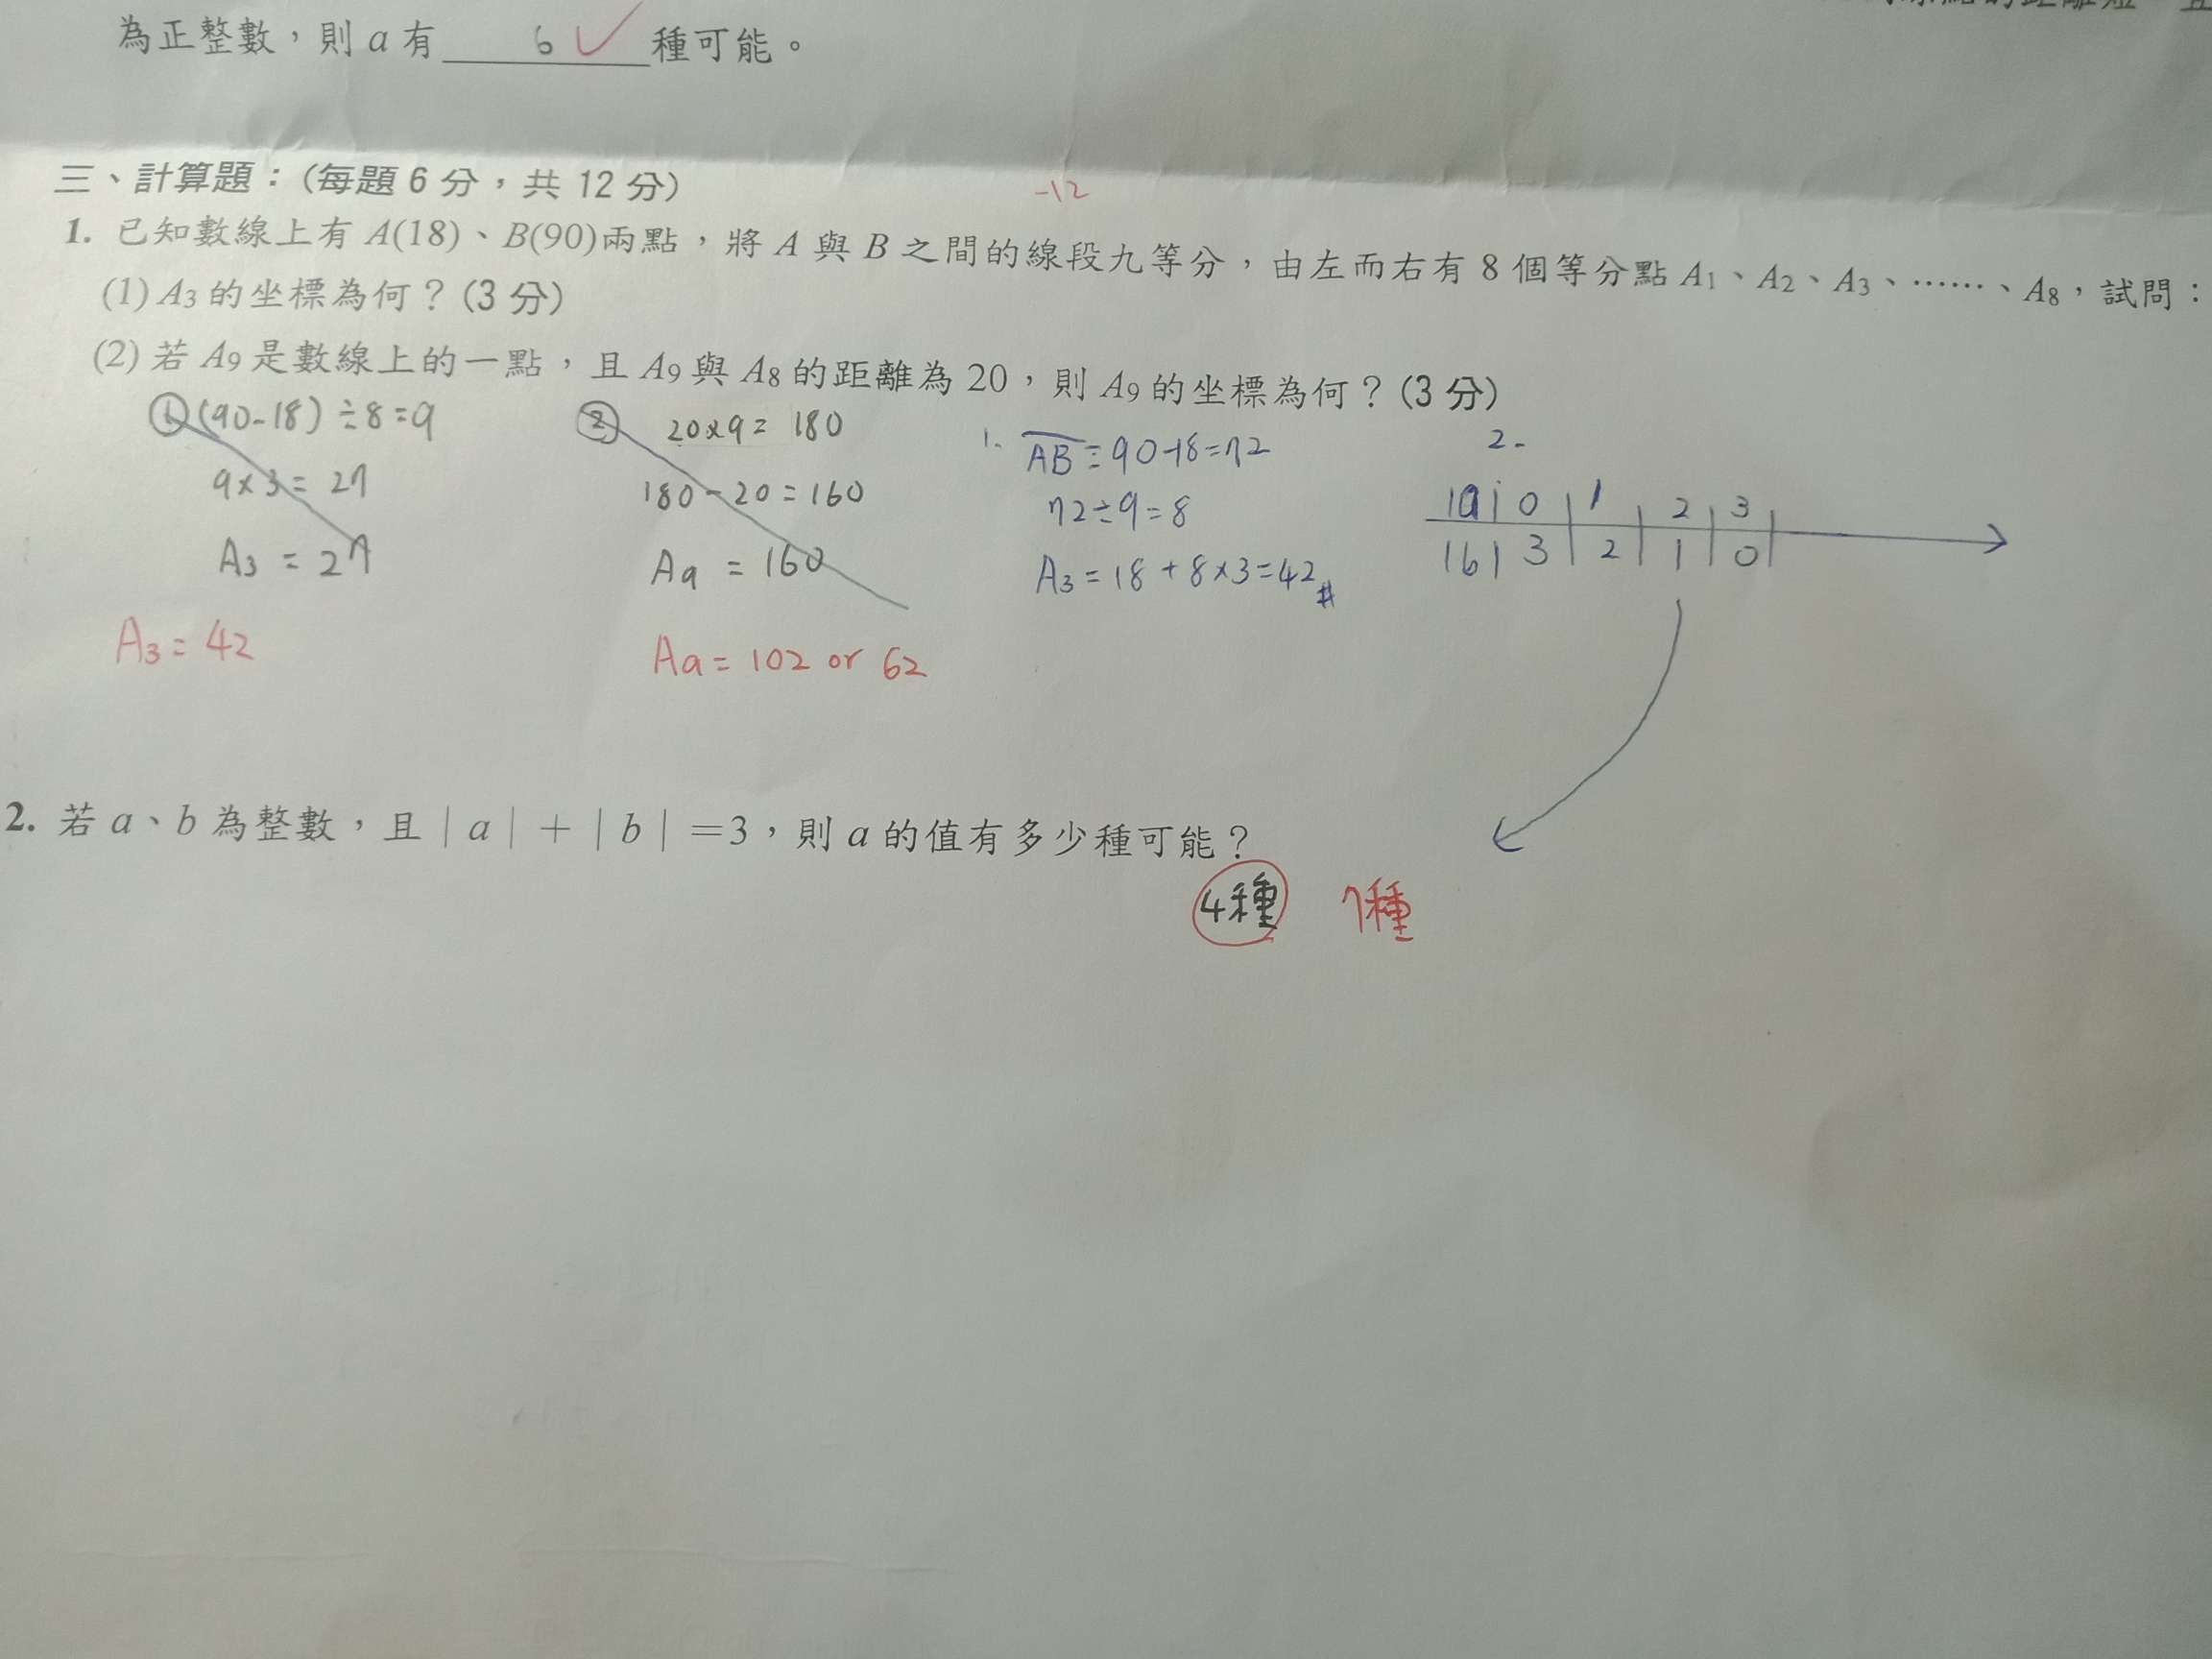 為正整數，則 a 有 6 ✓ 種可能。
三、計算題：(每題 6 分，共 12 分)
-12
1. 已知數線上有 A(18)、B(90)兩點，將 A 與 B 之間的線段九等分，由左而右有 8 個等分點 A1、A2、A3、……、A8，試問：
(1) A3 的坐標為何？(3 分)
(2) 若 A9 是數線上的一點，且 A9 與 A8 的距離為 20，則 A9 的坐標為何？(3 分)
① (90-18)÷8=9
9×3=27
A3=27
A3=42
② 20×9=180
180-20=160
A9=160
A9=102 or 62
1. AB=90-18=72
72÷9=8
A3=18+8×3=42#
2.
|a| 0 | 1 | 2 | 3 |
|b| 3 | 2 | 1 | 0 |
2. 若 a、b 為整數，且｜a｜+｜b｜=3，則 a 的值有多少種可能？
4種 7種